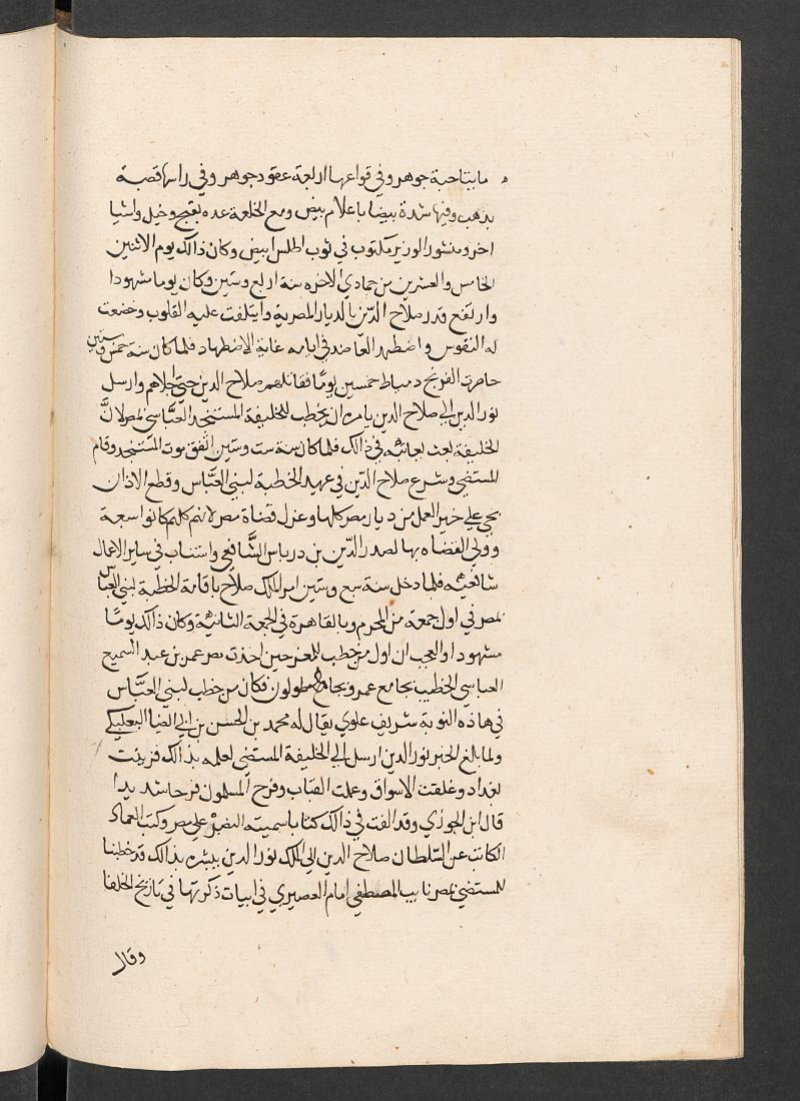 مايتاحبة جوهر وفي قواعها اربعة عقود جوهر وفي راسها قصبة
بدهب وفيها شدة بيضا باعلام بيض ومع الخلعة عده بقج وخيل واشيا
اخر ومنشور الوزير مكتوب في ثوب اطلس ابيض وكان ذالك يوم الاثنين
الخامس والعشرين من جمادي الاخره سنة اربع وستين وكان يوما مشهودا
وارتفع قدر صلاح الدين بالديار المصرية وايتلفت عليه القلوب وخضعت
له النفوس واضطهد العاضد في ايامه غاية الاضطهاد فلما كان سنة خمس وستين
حاصرت الفرنج دمياط خمسين يومًا فقاتلهم صلاح الدين حتي اجلاهم وارسل
نور الدين الي صلاح الدين يامره ان يخطب للخليفة المستنجد العبّاسي بمصر لانَّ
الخليفة بعث يعاتبه في ذالك فلما كان سنة ست وستين اتفق موت المستنجد وقام
المستضي وشرع صلاح الدّين في تمهيد الخطبة لبني العبّاس وقطع الاذان
بحي علي خير العمل من ديار مصر كلها وعزل قضاة مصر لانهم كلهم كانوا سبعة
وولي القضاه بها لصدر الدّين بن درباس الشّافعي واستناب في ساير الاعمال
شافعيه فلما دخل سنة سبع وستين امر الملك صلاح باقامة الخطبة لبني العباس
بمصر في اول جمعة من المحرم وبالقاهرة في الجمعة الثانيه وكان ذالك يومًا
مشهودا والعجب ان اول من خطب للمعز حين اخذت مصر عمر بن عبد السميع
العباسي الخطيب بجامع عمرو وبجامع طولون فكان من خطب لبني العبّاس
في هاذه النوبة شريف علوي يقال له محمد بن الحسن بن ابي الضيا البعلبكي
ولما بلغ الخبر نور الدين ارسل الي الخليفة المستضي يعلمه بذالك فزينت
بغداد وغلقت الاسواق وعملت القباب وفرح المسلمون فرحا شديدا
قال ابن الجوزي وقد الفت في ذالك كتابا سميته النصر علي مصر وكتب العماد
الكاتب عن السّلطان صلاح الدين الي الملك نور الدين يبشره بذالك قد خطبنا
للمستضي بمصر نايب المصطفي امام العصيري في ابيات ذكرتها في تاريخ الخلفا
وقال